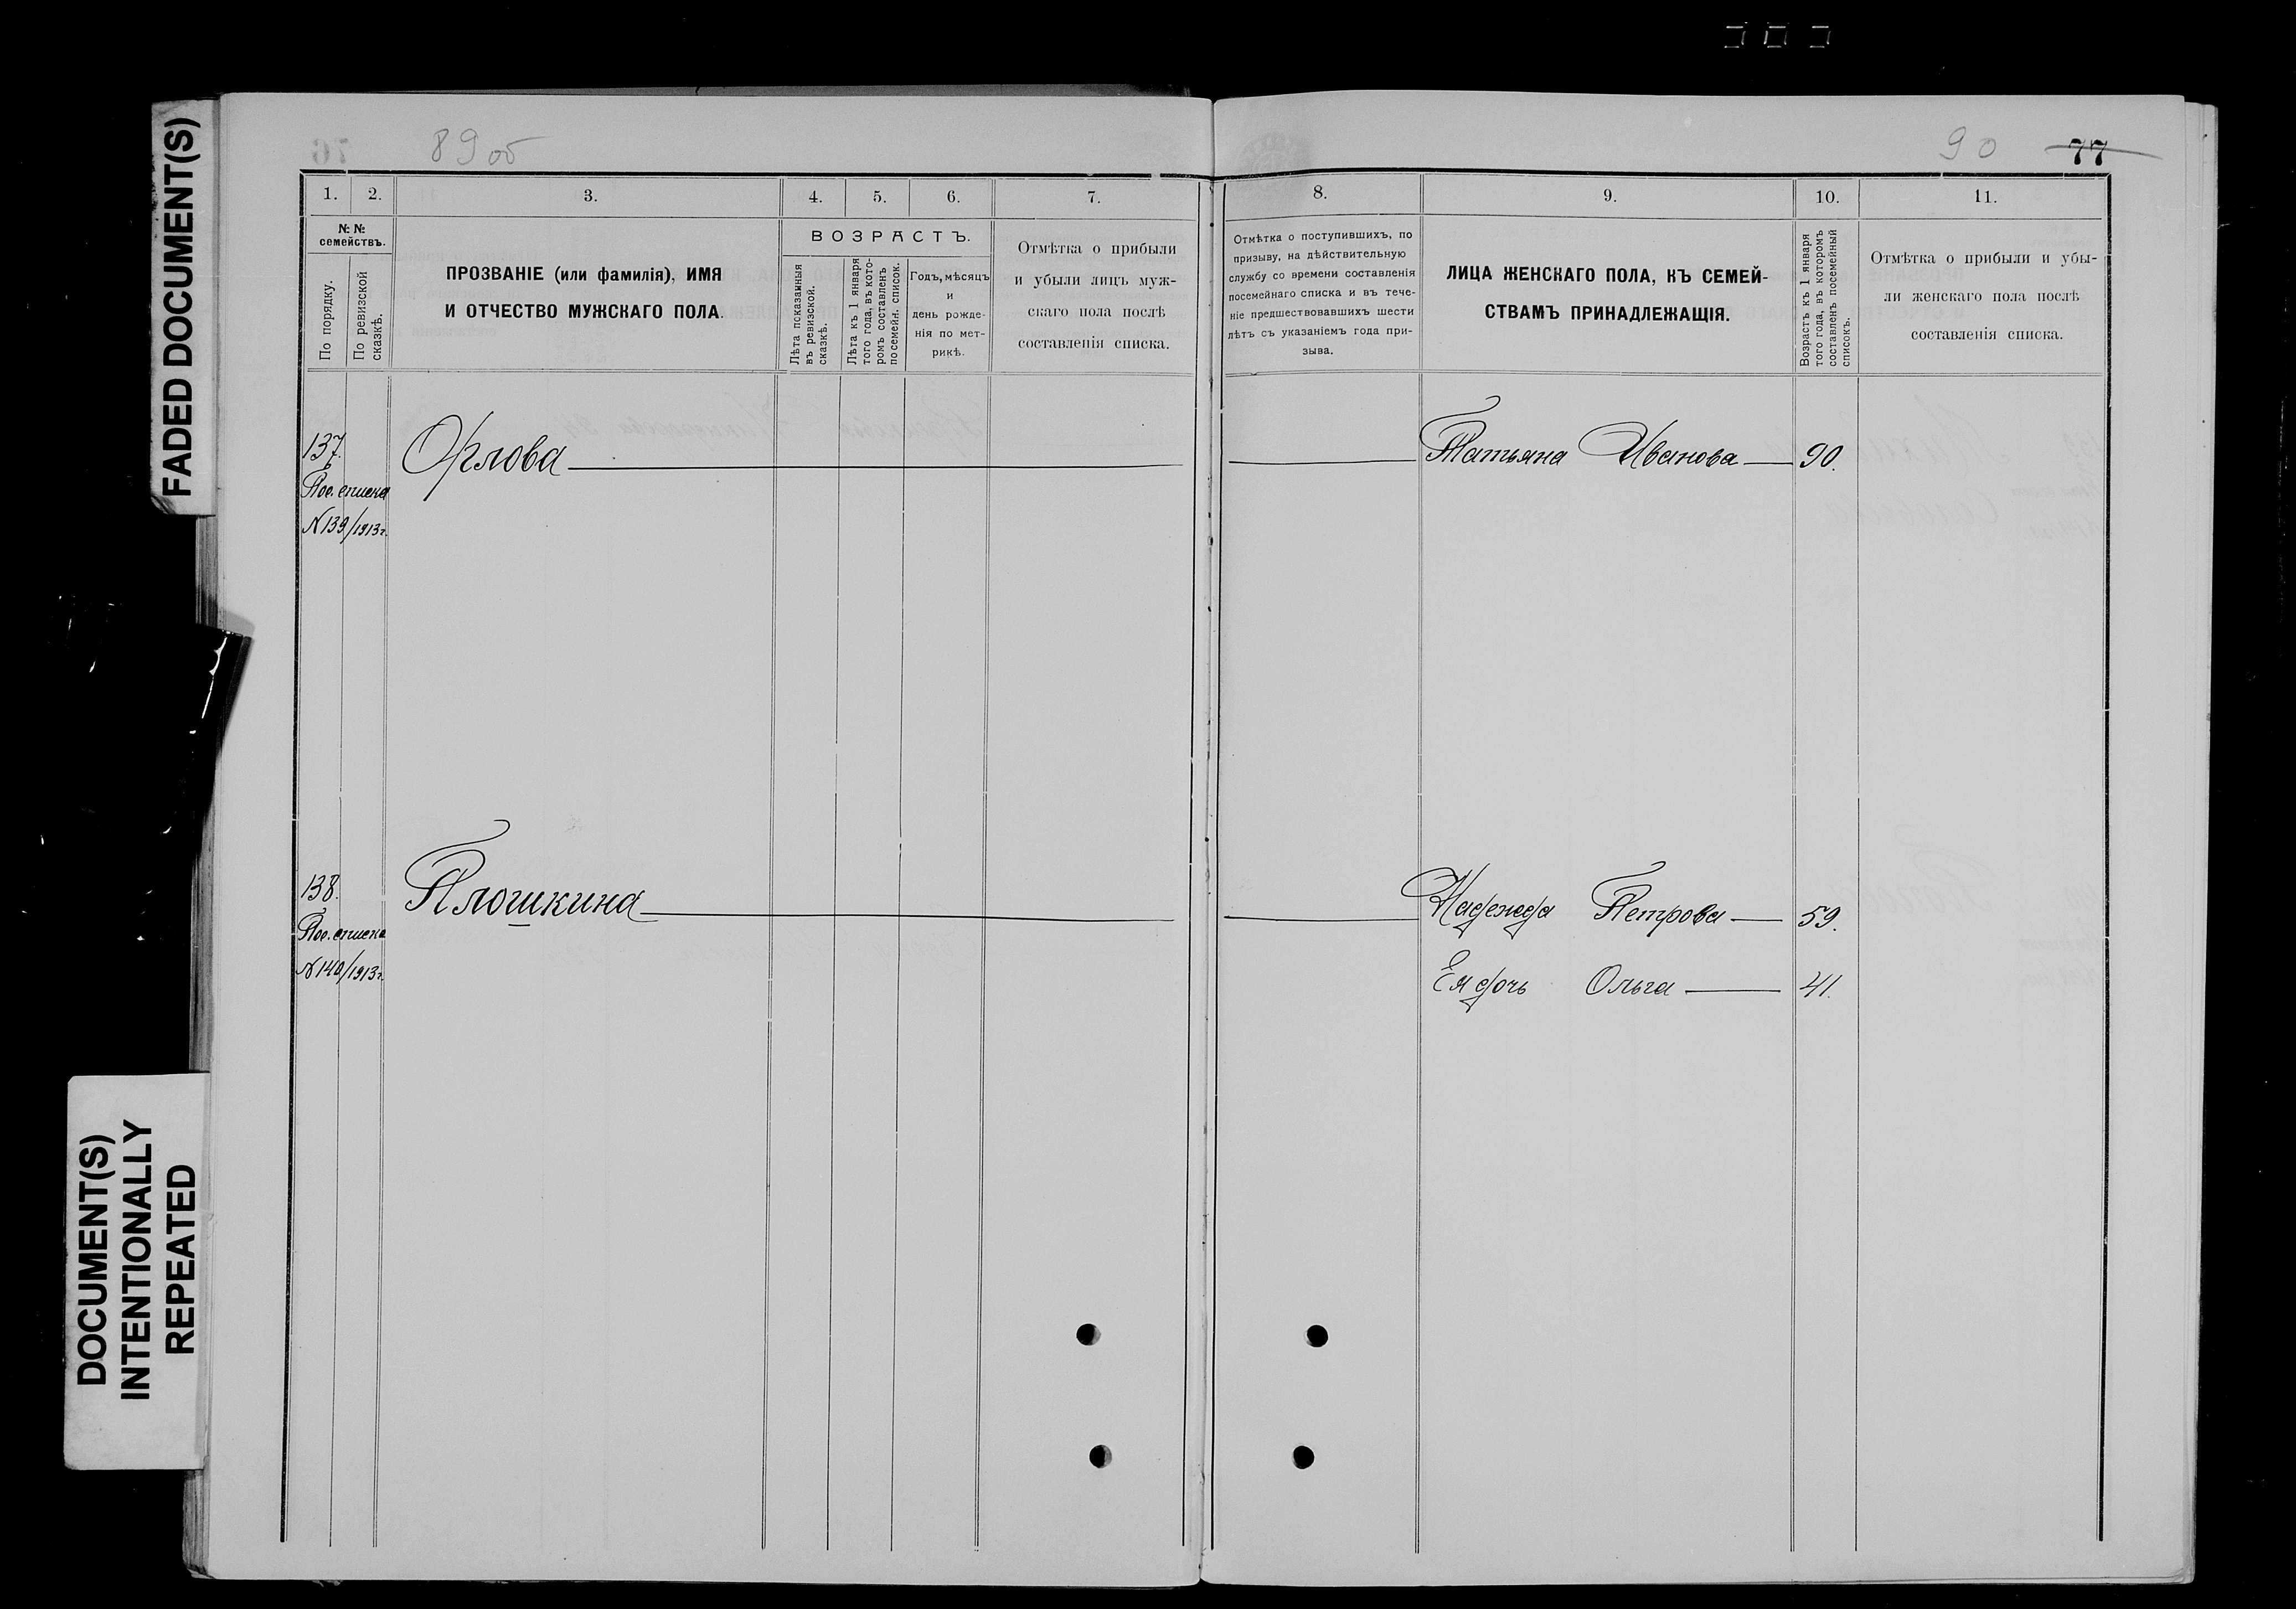 FADED DOCUMENT(S)
DOCUMENT(S)
INTENTIONALLY
REPEATED
89 об
1. 2. 3. 4. 5. 6. 7.
№ №
семействъ.
По порядку.
По ревизской
сказкѣ.
ПРОЗВАНІЕ (или фамилія), ИМЯ
И ОТЧЕСТВО МУЖСКАГО ПОЛА.
ВОЗРАСТЪ.
Лѣта показанныя
въ ревизской.
сказкѣ.
Лѣта къ 1 января
того года, въ кото-
ромъ составленъ
посемейн. список.
Годъ, мѣсяцъ
и
день рожде-
нія по мет-
рикѣ.
Отмѣтка о прибыли
и убыли лицъ муж-
скаго пола послѣ
составленія списка.
137.
Пос. списка
N 139/1913 г.
Орлова
138.
Пос. списка
N 140/1913 г.
Плошкина
90 77
8. 9. 10. 11.
Отмѣтка о поступившихъ, по
призыву, на дѣйствительную
службу со времени составленія
посемейнаго списка и въ тече-
ніе предшествовавшихъ шести
лѣтъ съ указаніемъ года при-
зыва.
ЛИЦА ЖЕНСКАГО ПОЛА, КЪ СЕМЕЙ-
СТВАМЪ ПРИНАДЛЕЖАЩІЯ.
Возрастъ къ 1 января
того года, въ которомъ
составленъ посемейный
списокъ.
Отмѣтка о прибыли и убы-
ли женскаго пола послѣ
составленія списка.
Татьяна Иванова 90.
Надежда Петрова 59.
Ея дочь Ольга 41.